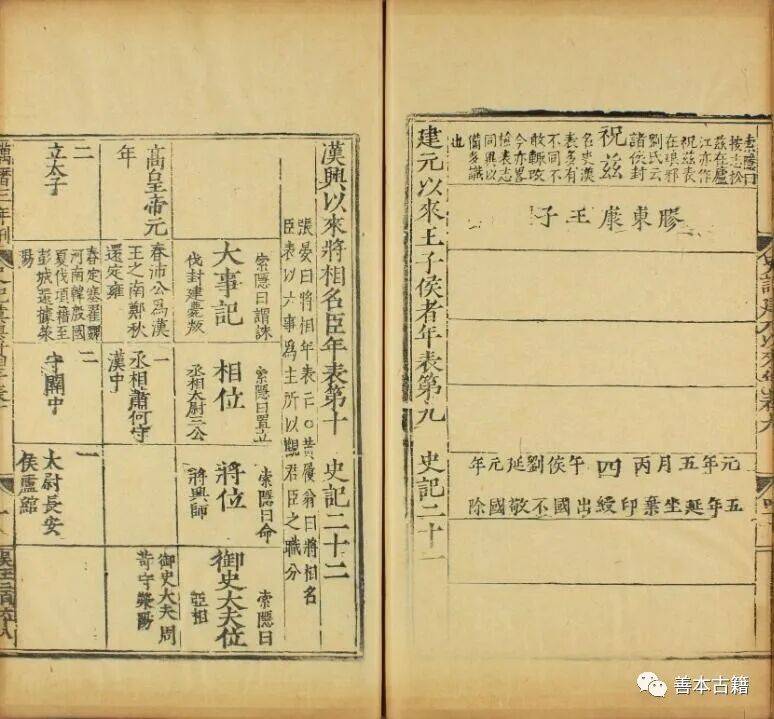 索隱曰
按志松
茲在廬
江亦作
祝茲表
在琅邪
劉氏云
諸侯封
祝茲
名史漢
表多有
不同不
敢輒改
今亦畧
檢表志
同異以
備多識
也
膠東康王子
元年五月丙四午侯劉延元年
五年延坐棄印綬出國不敬國除
建元以來王子侯者年表第九 史記二十一
漢興以來將相名臣年表第十 史記二十二
張晏曰將相年表二〇黃履翁曰將相名
臣表以六事爲主所以觀君臣之職分
大事記
索隱曰謂誅
伐封建薨叛
相位
索隱曰置立
丞相太尉三公
將位
索隱曰命
將興師
御史大夫位
索隱曰
亞相
高皇帝元
年
春沛公爲漢
王之南鄭秋
還定雍
一
丞相蕭何守
漢中
御史大夫周
苛守滎陽
二
立太子
春定塞翟魏
河南韓殷國
夏伐項籍至
彭城還據滎
陽
二
守關中
一
太尉長安
侯盧綰
萬曆三年刊
善本古籍